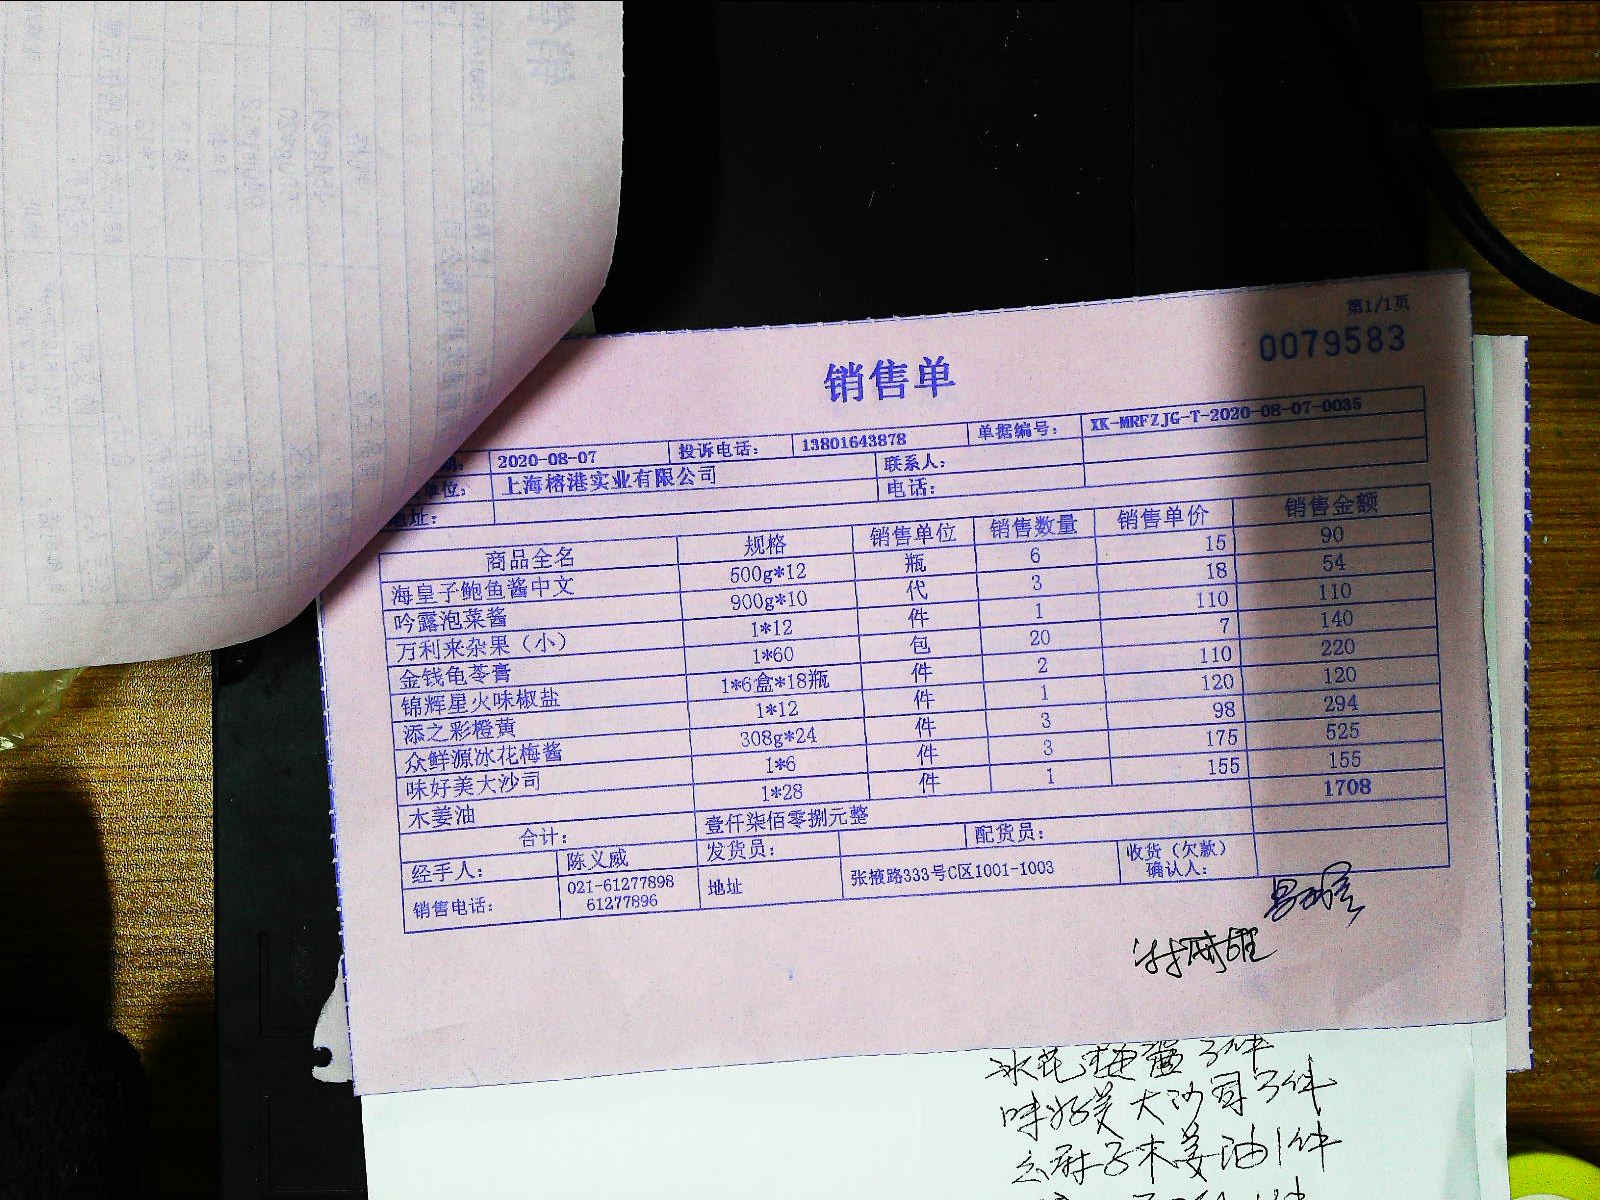 第1/1页
0079583
销售单
期: 2020-08-07 投诉电话: 13801643878 单据编号: XK-MRFZJG-T-2020-08-07-0035
单位: 上海榕港实业有限公司 联系人:
地址: 电话:
商品全名 规格 销售单位 销售数量 销售单价 销售金额
海皇子鲍鱼酱中文 500g*12 瓶 6 15 90
吟露泡菜酱 900g*10 代 3 18 54
万利来杂果（小） 1*12 件 1 110 110
金钱龟苓膏 1*60 包 20 7 140
锦辉星火味椒盐 1*6盒*18瓶 件 2 110 220
添之彩橙黄 1*12 件 1 120 120
众鲜源冰花梅酱 308g*24 件 3 98 294
味好美大沙司 1*6 件 3 175 525
木姜油 1*28 件 1 155 155
合计: 壹仟柒佰零捌元整 1708
经手人: 陈义威 发货员: 配货员:
销售电话: 021-61277898 61277896 地址 张掖路333号C区1001-1003 收货（欠款）确认人:
冰花梅酱3件
味好美大沙司3件
木姜油1件